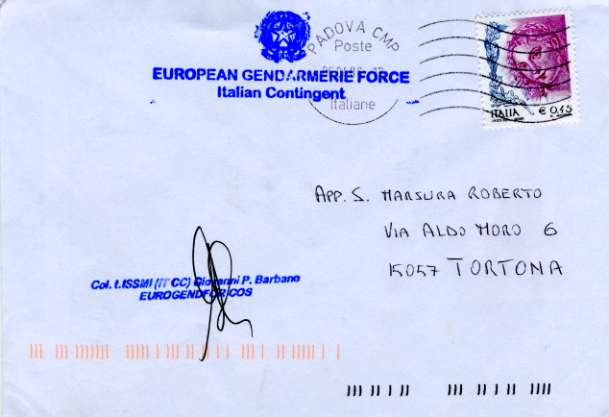 PADOVA CMP
Poste
Italiane
EUROPEAN GENDARMERIE FORCE
Italian Contingent
ITALIA € 0,45
APP. S. MARSURA ROBERTO
VIA ALDO MORO 6
15057 TORTONA
Col. t.ISSMI (IT CC) Giovanni P. Barbano
EUROGENDFOR COS